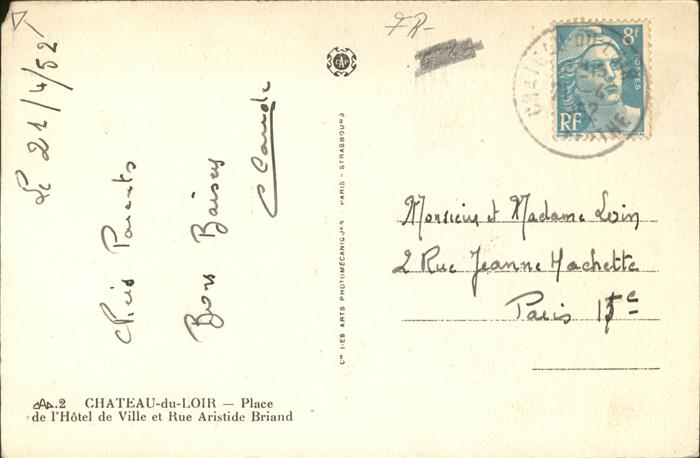 Le 21/4/52
Chers Parents
Bons Baisers
Claude
CAP
CIE DES ARTS PHOTOMÉCANIQUES PARIS - STRASBOURG
FR-
8F
POSTES
RF
Monsieur et Madame
2 Rue Jeanne Hachette
Paris 15e
CAP.2 CHATEAU-du-LOIR — Place
de l'Hôtel de Ville et Rue Aristide Briand